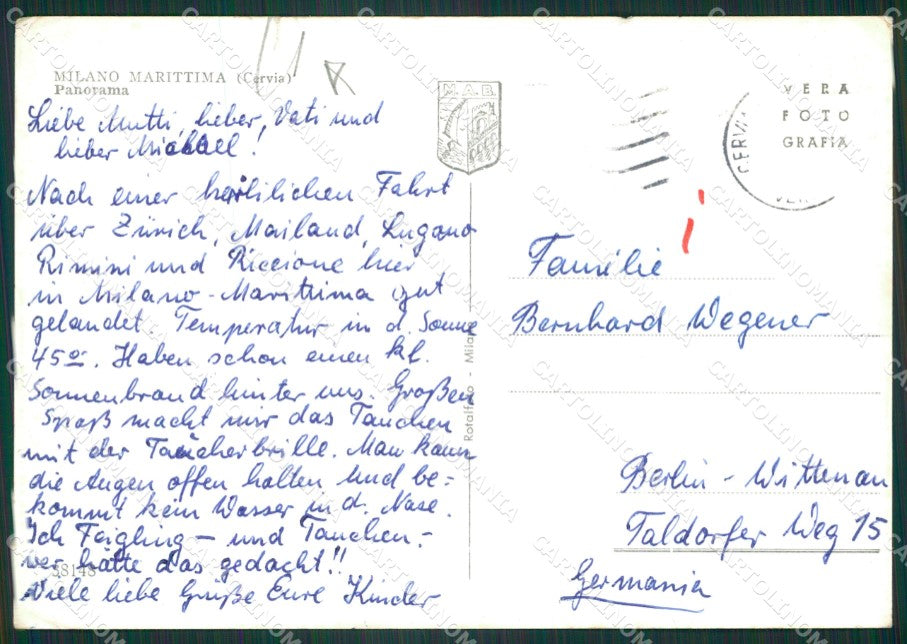 MILANO MARITTIMA (Cervia)
Panorama
Liebe Mutti, lieber, Vati und
lieber Michael!
Nach einer herrlichen Fahrt
über Zürich, Mailand, Lugano
Rimini und Riccione hier
in Milano-Marittima gut
gelandet. Temperatur in d. Sonne
45º. Haben schon einen kl.
Sonnenbrand hinter uns. Großen
Spaß macht mir das Tauchen
mit der Taucherbrille. Man kann
die Augen offen halten und be=
kommt kein Wasser in d. Nase.
Ich Feigling – und Tauchen –
wer hätte das gedacht!!
Viele liebe Grüße Eure Kinder
58148
M.A.B.
Rotalfoto - Milano
CERVIA
VERA
FOTO
GRAFIA
Familie
Bernhard Wegener
Berlin - Wittenau
Taldorfer Weg 15
Germania
CARTOLINOMANIA